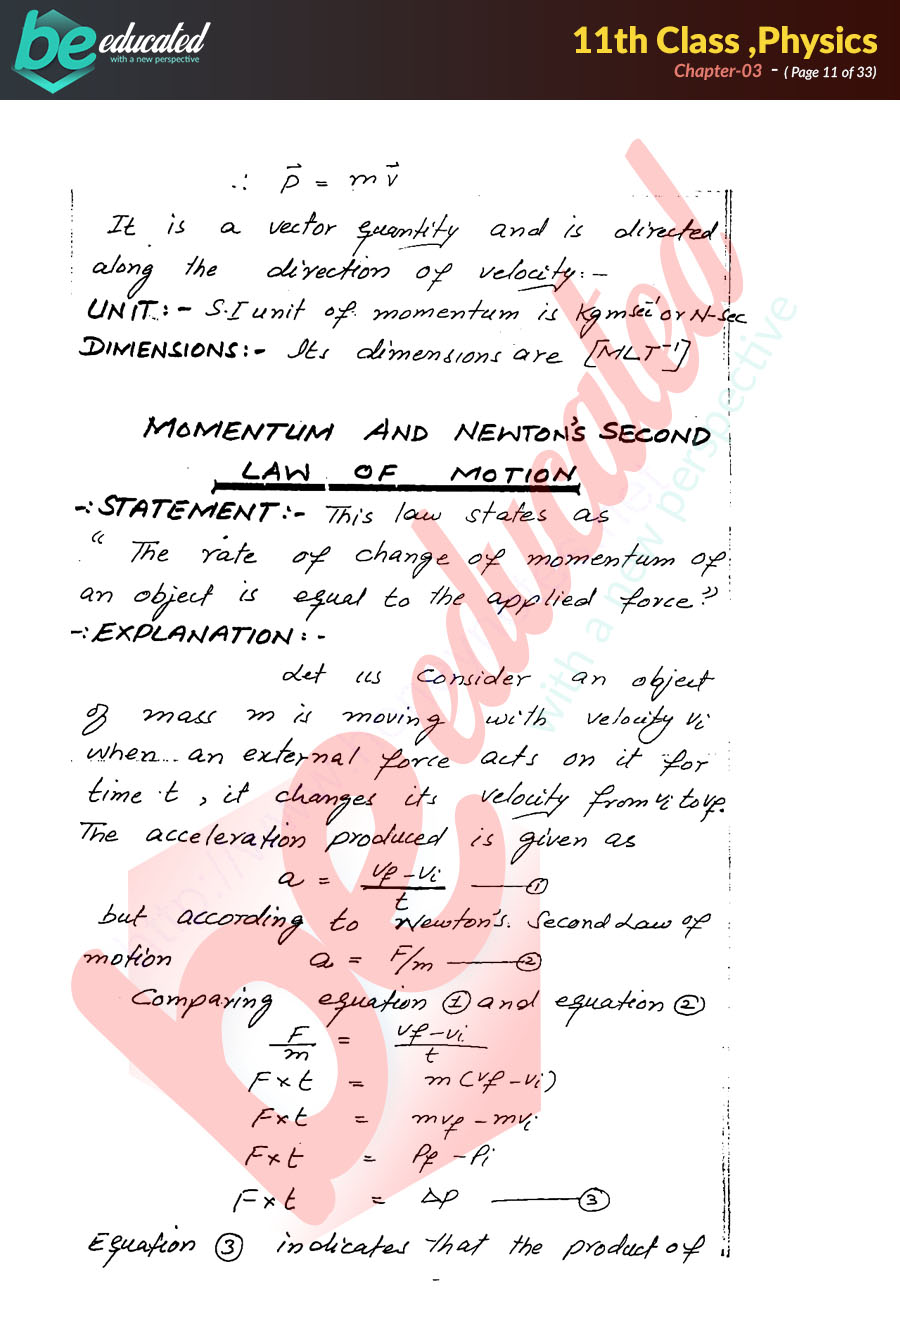 be educated
with a new perspective
11th Class ,Physics
Chapter-03 - ( Page 11 of 33)
∴ p⃗ = m v⃗
It is a vector quantity and is directed
along the direction of velocity:-
UNIT:- S.I unit of momentum is Kgmsec⁻¹ or N-sec
DIMENSIONS:- Its dimensions are [MLT⁻¹]
MOMENTUM AND NEWTON'S SECOND
LAW OF MOTION
-:STATEMENT:- This law states as
“ The rate of change of momentum of
an object is equal to the applied force.”
-:EXPLANATION:-
Let us consider an object
of mass m is moving with velocity vi
when an external force acts on it for
time t, it changes its velocity from vi to vf.
The acceleration produced is given as
a = vf - vi / t ——①
but according to Newton's. Second Law of
motion a = F/m ——②
Comparing equation ① and equation ②
F/m = vf - vi / t
F×t = m(vf - vi)
F×t = mvf - mvi
F×t = Pf - Pi
F×t = ΔP ——③
Equation ③ indicates that the product of
be educated
with a new perspective